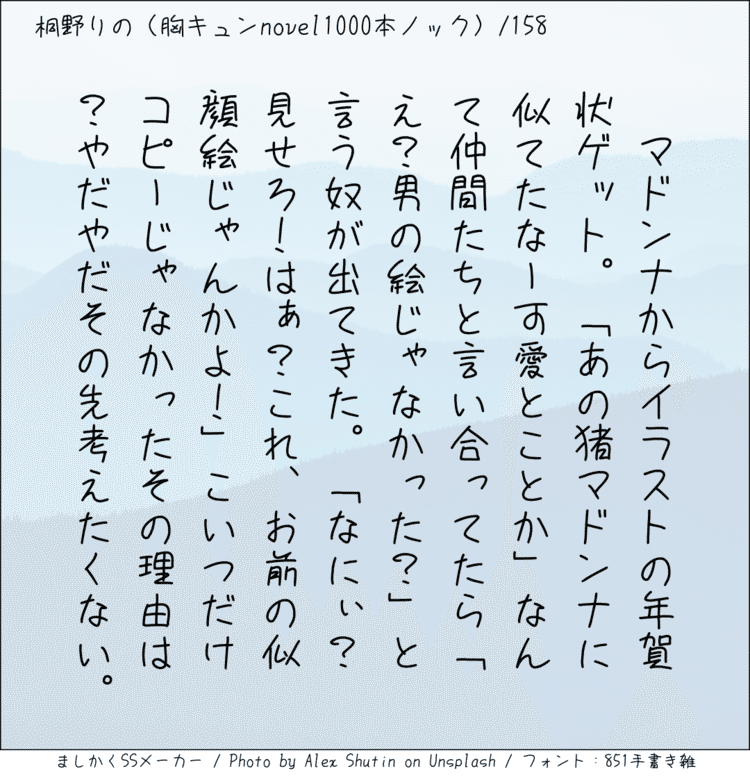 桐野りの（胸キュンnovel1000本ノック）/158
マドンナからイラストの年賀
状ゲット。「あの猪マドンナに
似てたなーす愛とことか」なん
て仲間たちと言い合ってたら「
え？男の絵じゃなかった？」と
言う奴が出てきた。「なにぃ？
見せろ！はぁ？これ、お前の似
顔絵じゃんかよ！」こいつだけ
コピーじゃなかったその理由は
？やだやだその先考えたくない。
ましかくSSメーカー / Photo by Alex Shutin on Unsplash / フォント：851手書き雑